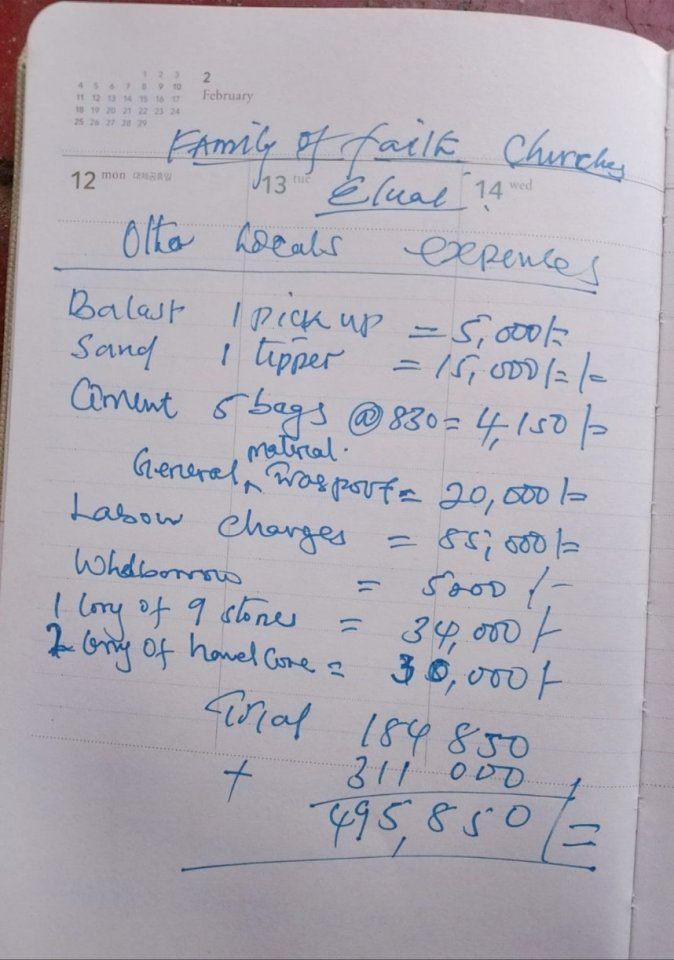 1 2 3
4 5 6 7 8 9 10
11 12 13 14 15 16 17
18 19 20 21 22 23 24
25 26 27 28 29
2
February
FAmily of faith Churches
12 mon 대체공휴일 13 tue 14 wed
Other Locals expences
Balast 1 pick up = 5,000/=
Sand 1 tipper = 15,000/=/=
Cement 5 bags @830= 4,150/=
material
General ^ Trasport = 20,000/=
Labour charges = 85,000/=
= 5000 /=
1 lory of 9 stones = 34,000/=
2 lory of hand core = 30,000/=
Total 184 850
+ 311 000
495,850/=